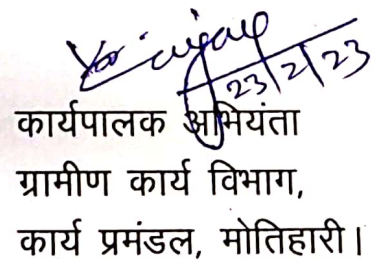 23/2/23
कार्यपालक अभियंता
ग्रामीण कार्य विभाग,
कार्य प्रमंडल, मोतिहारी।